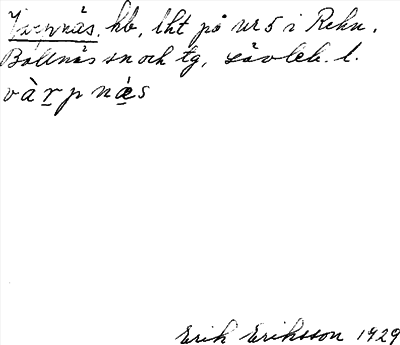 Varpnäs, hb, lht på nr 5 i Rehn,
Bollnäs sn och tg, Gävleb. l.
vàr̲pnä̲s
Erik Eriksson 1929